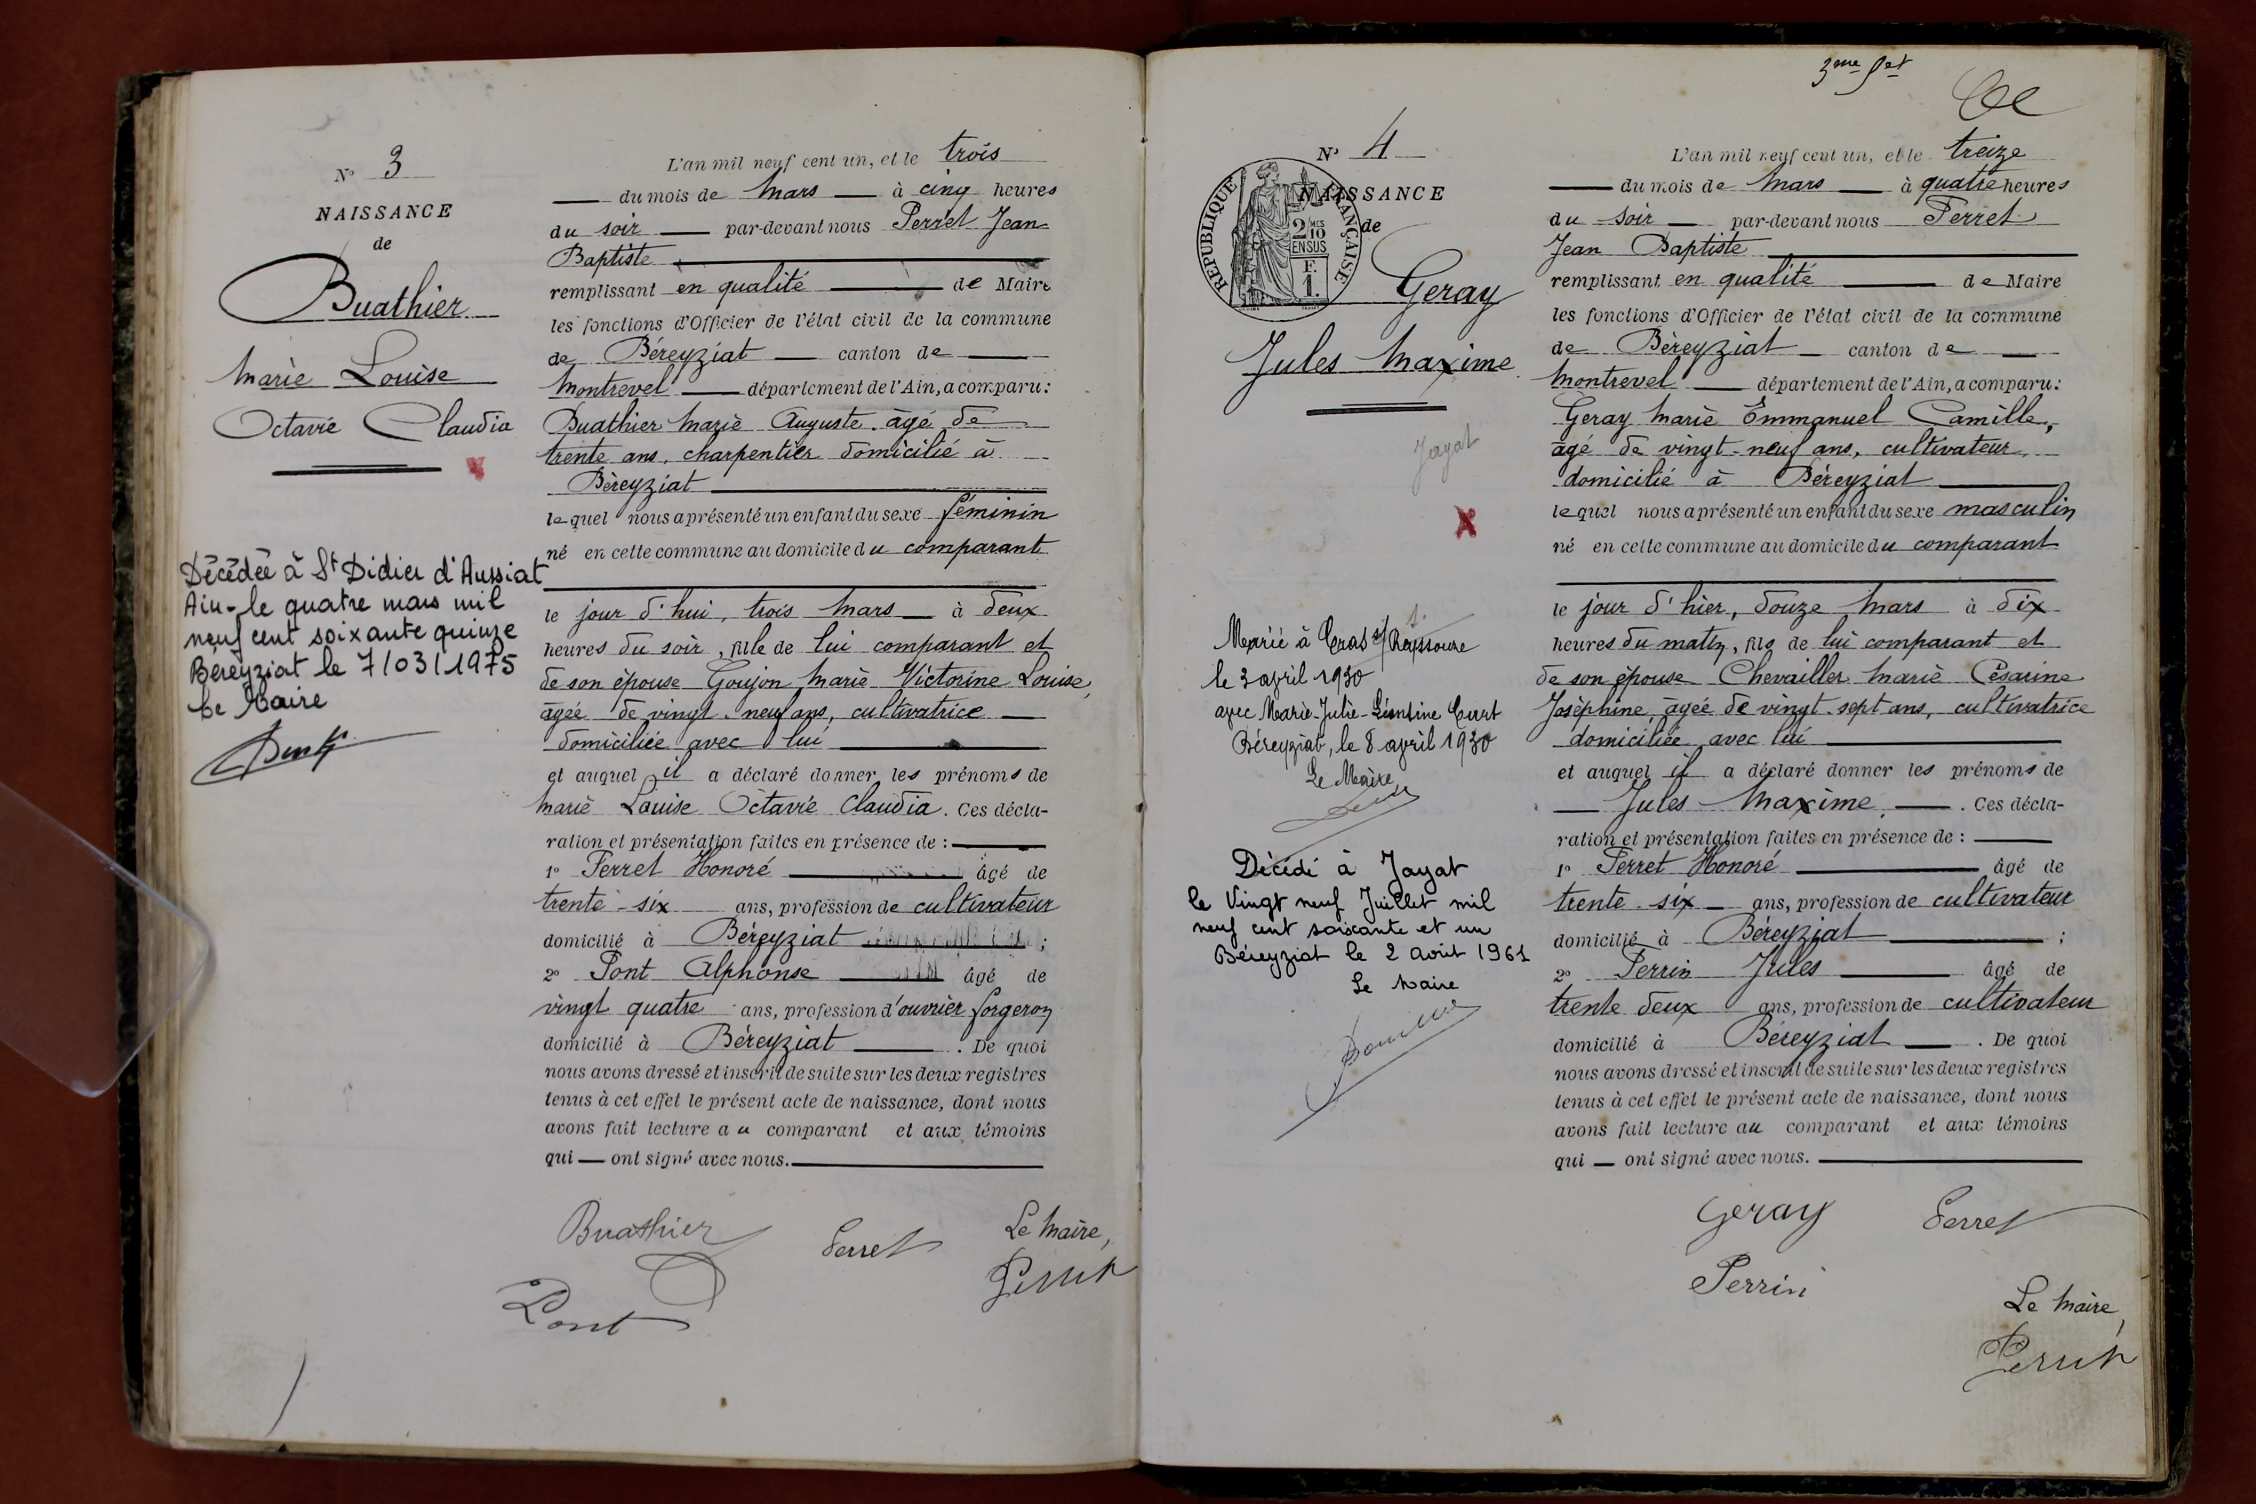 N° 3
NAISSANCE
de
Buathier
Marie Louise
Octavie Claudia
Décédée à St Didier d'Aussiat
Ain - le quatre mars mil
neuf cent soixante quinze
Béreyziat le 7/03/1975
Le Maire
L'an mil neuf cent un, et le trois
du mois de Mars à cinq heures
du soir par-devant nous Perret Jean
Baptiste
remplissant en qualité de Maire
les fonctions d'Officier de l'état civil de la commune
de Béreyziat canton de
Montrevel département de l'Ain, a comparu:
Buathier Marie Auguste, âgé de
trente ans, charpentier domicilié à
Béreyziat
lequel nous a présenté un enfant du sexe féminin
né en cette commune au domicile du comparant
le jour d'hui, trois Mars à deux
heures du soir, fille de lui comparant et
de son épouse Goujon Marie Victorine Louise,
âgée de vingt-neuf ans, cultivatrice
domiciliée avec lui
et auquel il a déclaré donner les prénoms de
Marie Louise Octavie Claudia. Ces décla-
ration et présentation faites en présence de :
1° Perret Honoré âgé de
trente-six ans, profession de cultivateur
domicilié à Béreyziat ;
2° Pont Alphonse âgé de
vingt quatre ans, profession d'ouvrier forgeron
domicilié à Béreyziat . De quoi
nous avons dressé et inscrit de suite sur les deux registres
tenus à cet effet le présent acte de naissance, dont nous
avons fait lecture au comparant et aux témoins
qui ont signé avec nous.
Buathier Perret Le Maire,
Pont Perret
3me
N° 4
NAISSANCE
de
RÉPUBLIQUE FRANÇAISE
2 MES
10
EN SUS
F.
1.
Geray
Jules Maxime
Jayat
Marié à Cras s/ Reyssouze
le 3 avril 1930
avec Marie-Julie-Léontine Curt
Béreyziat, le 8 avril 1930
Le Maire
Décédé à Jayat
le Vingt neuf Juillet mil
neuf cent soixante et un
Béreyziat le 2 Août 1961
Le Maire
L'an mil neuf cent un, et le treize
du mois de Mars à quatre heures
du soir par-devant nous Perret
Jean Baptiste
remplissant en qualité de Maire
les fonctions d'Officier de l'état civil de la commune
de Béreyziat canton de
Montrevel département de l'Ain, a comparu:
Geray Marie Emmanuel Camille,
âgé de vingt-neuf ans, cultivateur,
domicilié à Béreyziat
lequel nous a présenté un enfant du sexe masculin
né en cette commune au domicile du comparant
le jour d'hier, douze Mars à dix
heures du matin, fils de lui comparant et
de son épouse Chevailler Marie Césarine
Joséphine, âgée de vingt-sept ans, cultivatrice
domiciliée avec lui
et auquel il a déclaré donner les prénoms de
Jules Maxime. Ces décla-
ration et présentation faites en présence de :
1° Perret Honoré âgé de
trente-six ans, profession de cultivateur
domicilié à Béreyziat ;
2° Perrin Jules âgé de
trente deux ans, profession de cultivateur
domicilié à Béreyziat . De quoi
nous avons dressé et inscrit de suite sur les deux registres
tenus à cet effet le présent acte de naissance, dont nous
avons fait lecture au comparant et aux témoins
qui ont signé avec nous.
Geray Perret
Perrin
Le Maire,
Perret